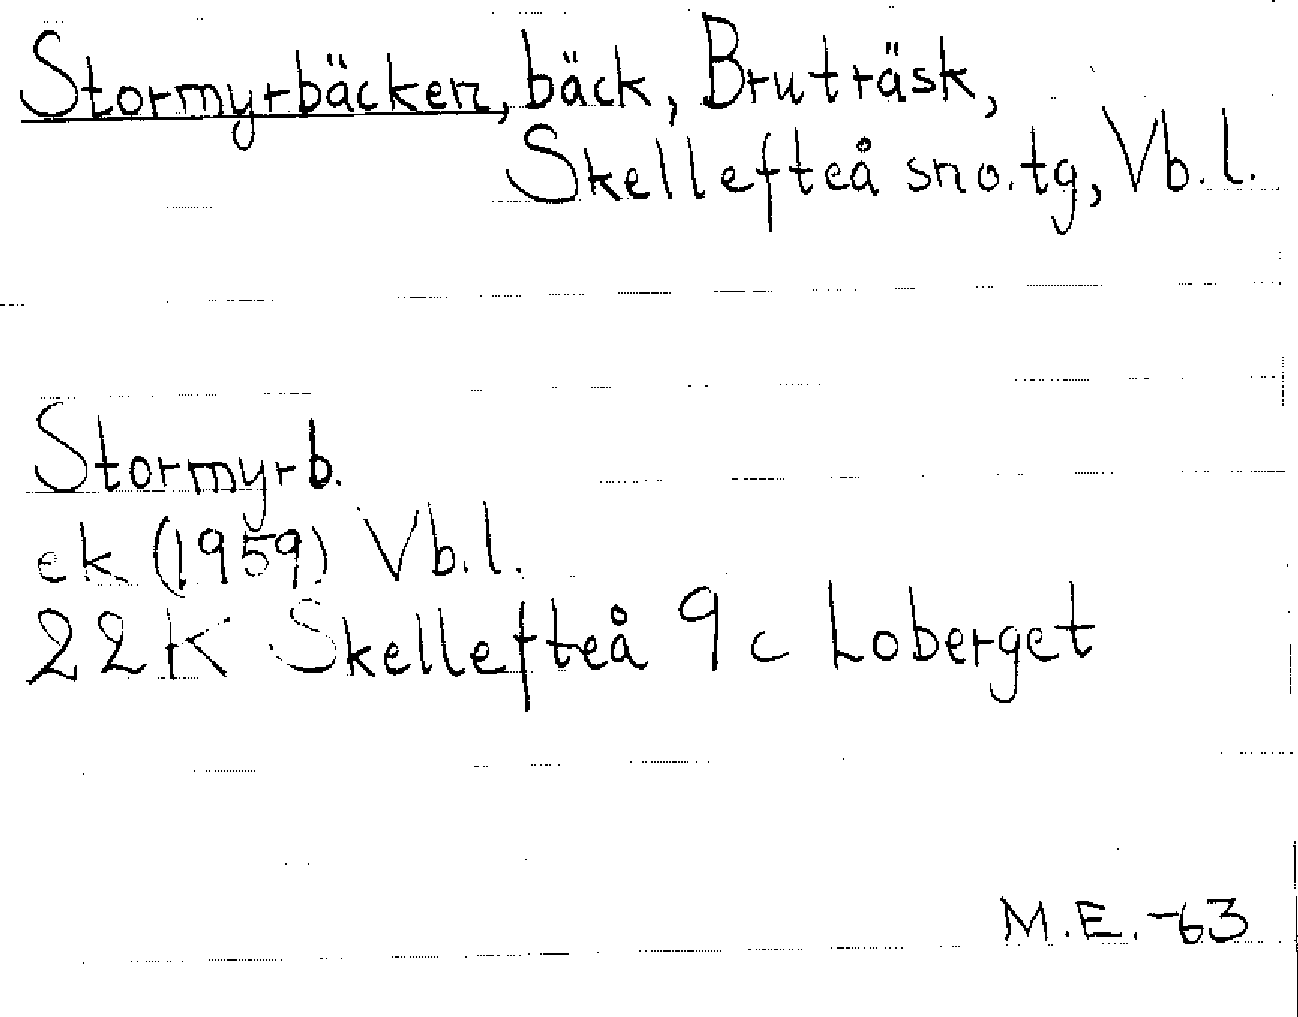 Stormyrbäcken, bäck, Bruträsk,
Skellefteå sno.tg, Vb.l.
Stormyrb.
ek (1959) Vb.l.
22K Skellefteå 9c Loberget
M.E.-63